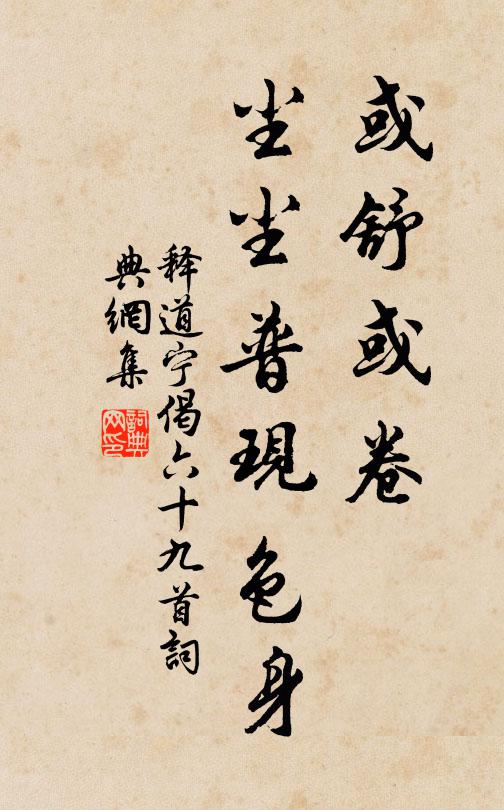 或舒或卷
尘尘普現色身
释道宁偈六十九首詞
典網集
詞典
网印